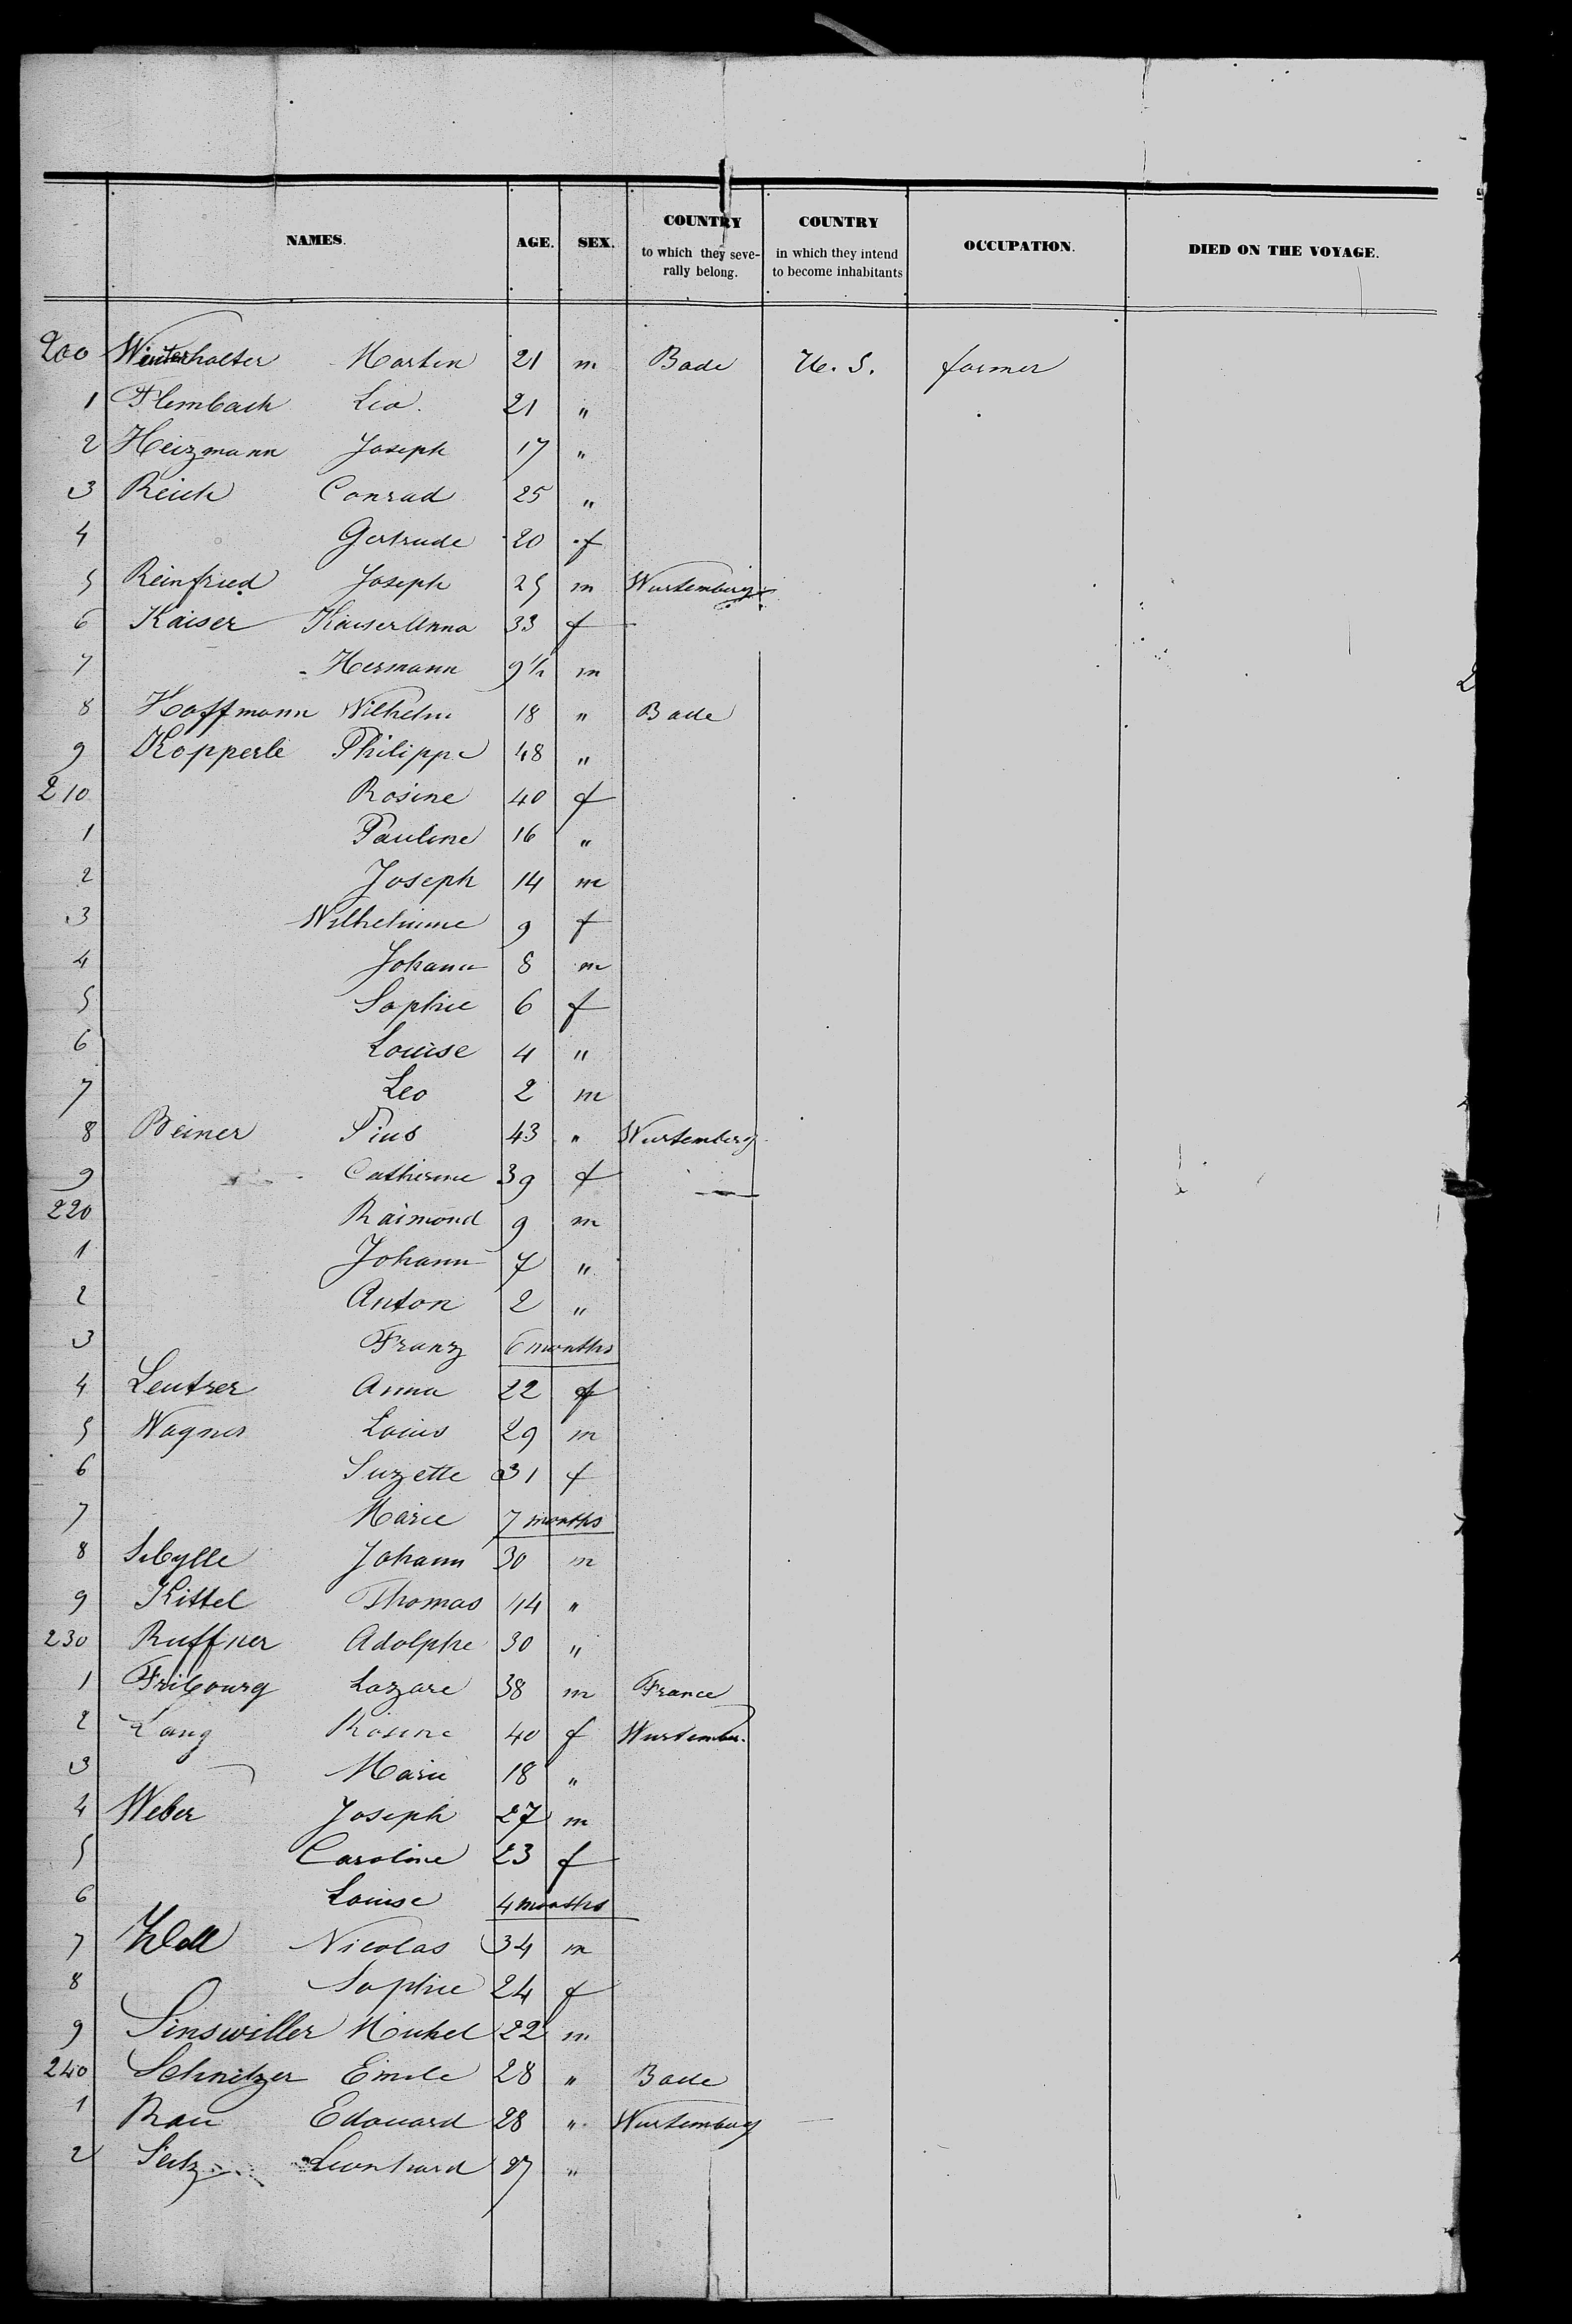 NAMES. AGE. SEX. COUNTRY to which they seve-rally belong. COUNTRY in which they intend to become inhabitants OCCUPATION. DIED ON THE VOYAGE.
200 Winterhalter Martin 21 m Bade U. S. farmer
1 Flembach Leo. 21 "
2 Heizmann Joseph 17 "
3 Reich Conrad 25 "
4 Gertrude 20 f
5 Reinfried Joseph 25 m Wurtemberg
6 Kaiser Kaiser Anna 33 f
7 Hermann 9½ m
8 Hoffmann Wilhelm 18 " Bade
9 Kopperle Philippe 48 "
210 Rosine 40 f
1 Pauline 16 "
2 Joseph 14 m
3 Wilhelmine 9 f
4 Johann 8 m
5 Sophie 6 f
6 Louise 4 "
7 Leo 2 m
8 Beiner Pius 43 " Wurtemberg
9 Catherine 39 f
220 Raimond 9 m
1 Johann 7 "
2 Anton 2 "
3 Franz 6 months
4 Leutzer Anna 22 f
5 Wagner Louis 29 m
6 Suzette 31 f
7 Marie 7 months
8 Sibylle Johann 30 m
9 Kittel Thomas 44 "
230 Ruffner Adolphe 30 "
1 Fribourg Lazare 38 m France
2 Lang Rosine 40 f Wurtember.
3 Marie 18 "
4 Weber Joseph 27 m
5 Caroline 23 f
6 Louise 4 months
7 Nicolas 34 m
8 Sophie 24 f
9 Sinswiller Michel 22 m
240 Schnitzer Emile 28 " Bade
1 Rau Edouard 28 " Wurtemberg
2 Seitz Leonhard 27 "